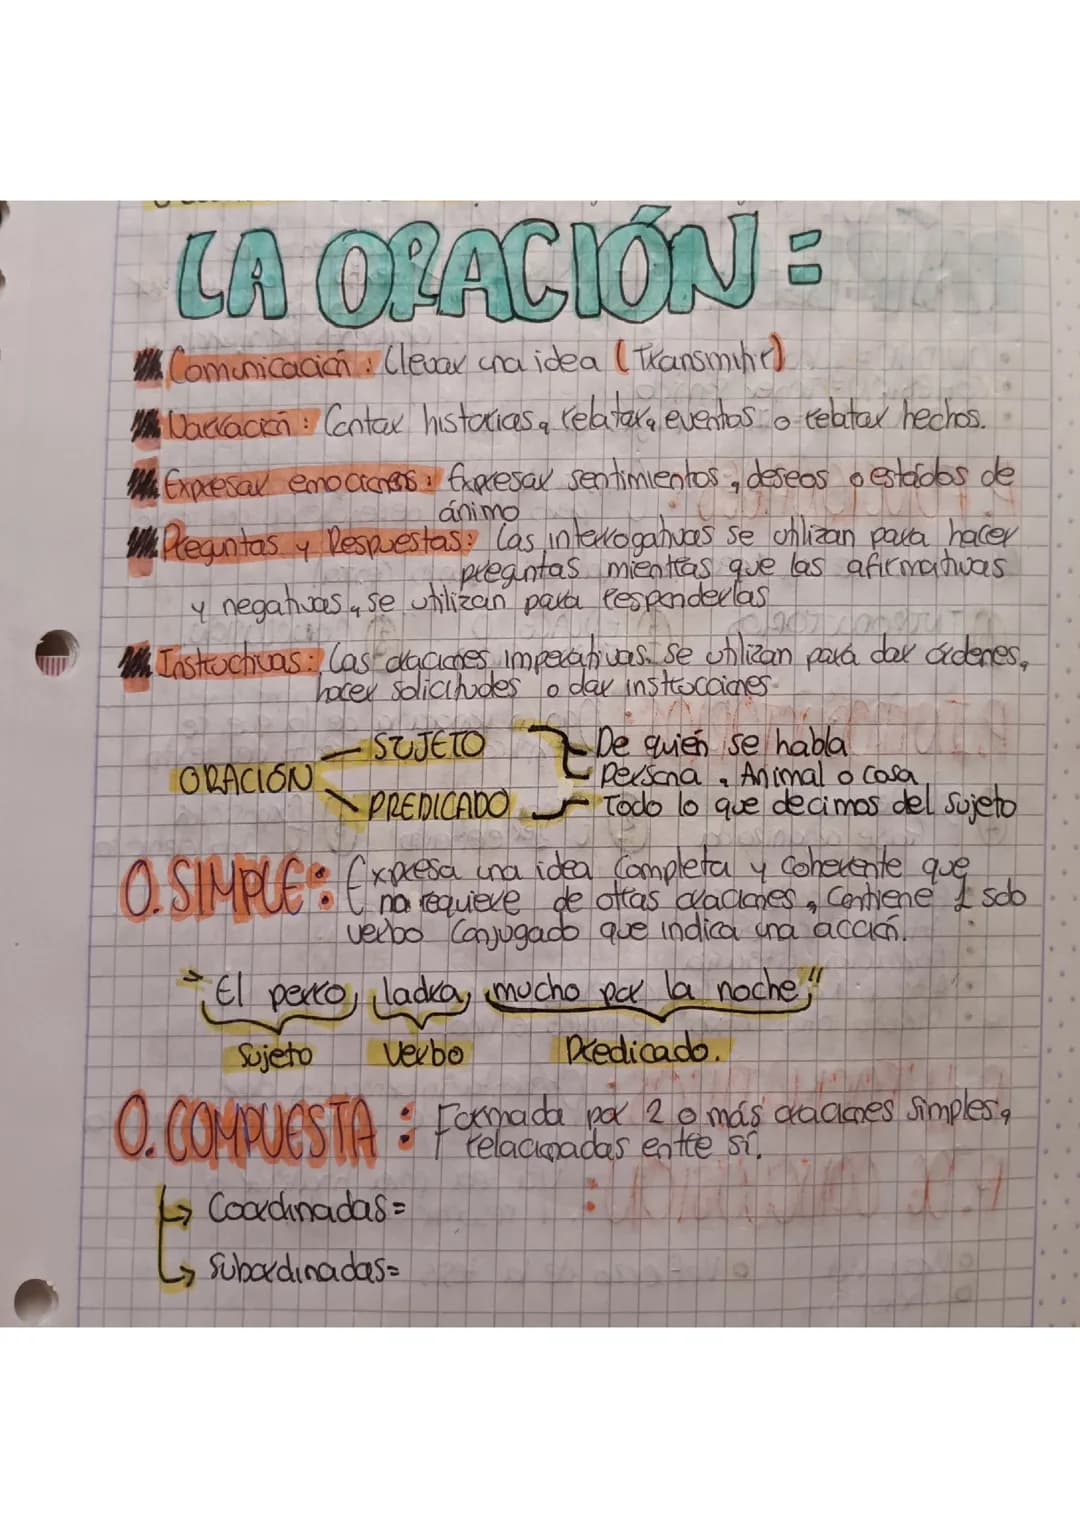 LA ORACIÓN =
Comunicación : Llevar una idea ( Transmitir)
Narración : Contar historias, relatar, eventos o relatar hechos.
Expresar emociones : Expresar sentimientos, deseos o estados de
ánimo
Preguntas y Respuestas: Las interrogativas se utilizan para hacer
preguntas mientras que las afirmativas
y negativas, se utilizan para responderlas
Instructivas: Las oraciones imperativas. Se utilizan para dar órdenes,
hacer solicitudes o dar instrucciones.
SUJETO De quién se habla
ORACIÓN Persona, Animal o cosa
PREDICADO Todo lo que decimos del sujeto
O. SIMPLE: Expresa una idea completa y coherente que
no requiere de otras oraciones, contiene 1 solo
verbo conjugado que indica una acción.
"El perro, ladra, mucho por la noche,"
Sujeto Verbo Predicado.
O. COMPUESTA : Formada por 2 o más oraciones simples,
relacionadas entre sí.
Coordinadas=
Subordinadas=